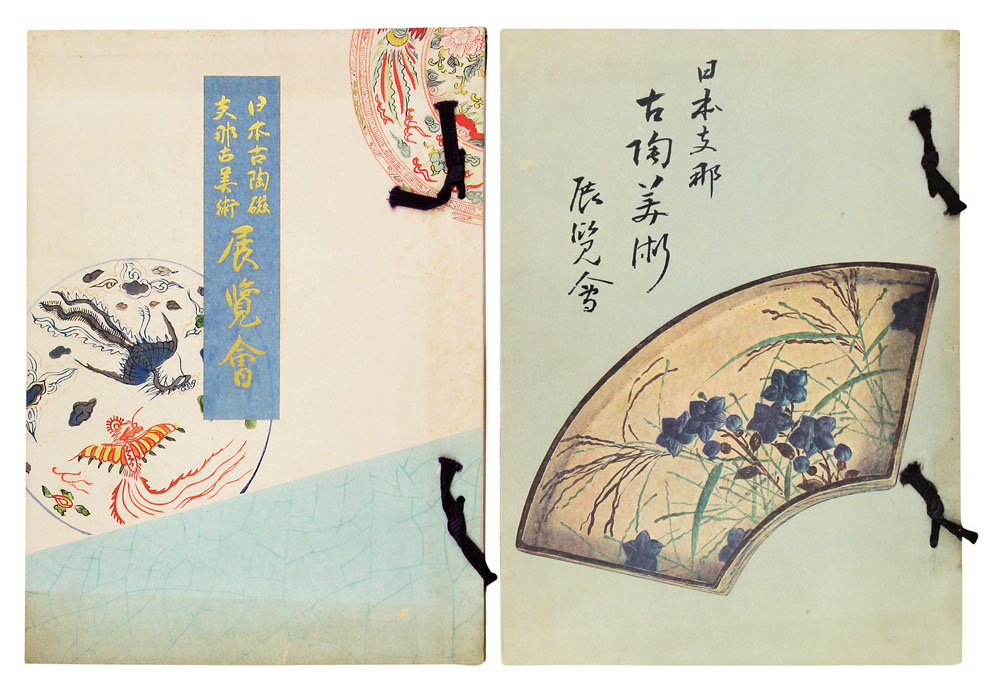 日本古陶磁
支那古美術
展覧會
日本支那
古陶美術
展覧會